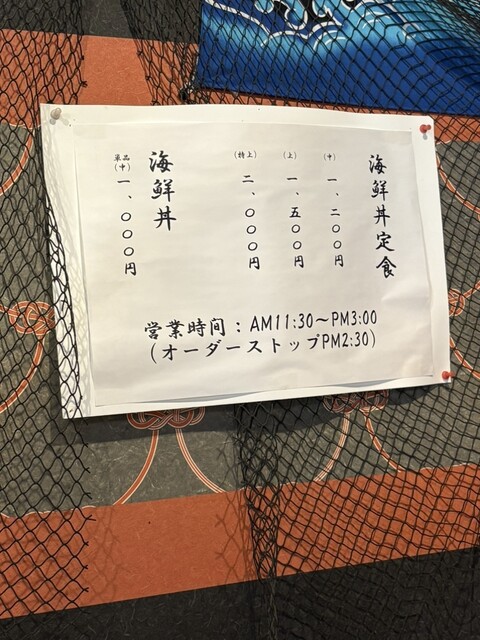 海鮮丼定食
(中) 一、二〇〇円
(上) 一、五〇〇円
(特上) 二、〇〇〇円
海鮮丼
単品(中) 一、〇〇〇円
営業時間：AM11:30〜PM3:00
(オーダーストップPM2:30)